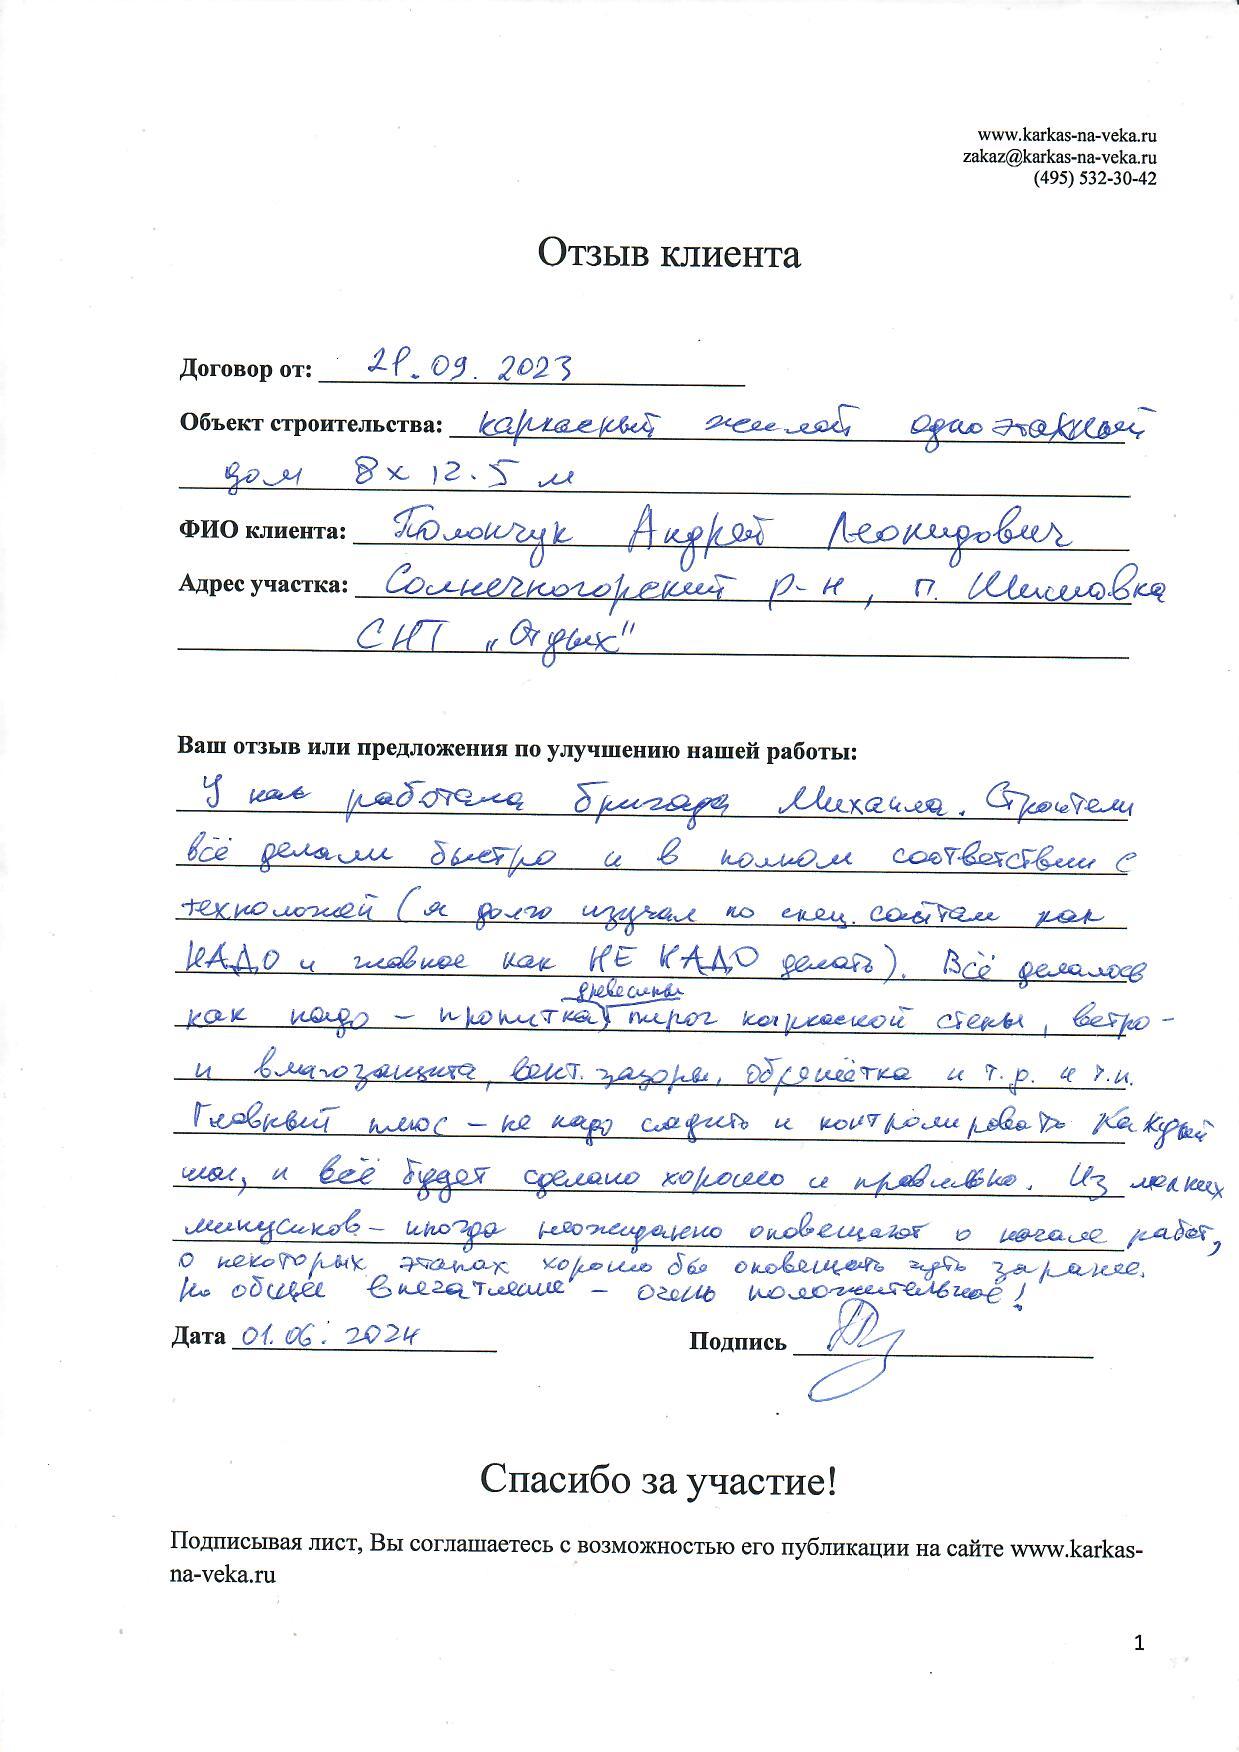 www.karkas-na-veka.ru
zakaz@karkas-na-veka.ru
(495) 532-30-42
Отзыв клиента
Договор от: 28.09.2023
Объект строительства: каркасный жилой одноэтажный
дом 8х12.5 м
ФИО клиента: Полончук Андрей Леонидович
Адрес участка: Солнечногорский р-н, п. Шишовка
СНТ „Отдых"
Ваш отзыв или предложения по улучшению нашей работы:
У нас работала бригада Михаила. Строители
всё делали быстро и в полном соответствии с
технологией (я долго изучал по спец. сайтам как
НАДО и главное как НЕ НАДО делать). Всё делалось
древесины
как надо – пропитка, пирог каркасной стены, ветро-
и влагозащита, вент. зазоры, обрешётка и т.д. и т.п.
Главный плюс – не надо следить и контролировать каждый
шаг, и всё будет сделано хорошо и правильно. Из мелких
минусиков – иногда неожиданно оповещают о начале работ,
о некоторых этапах хорошо бы оповещать чуть заранее.
Но общее впечатление – очень положительное!
Дата 01.06.2024 Подпись
Спасибо за участие!
Подписывая лист, Вы соглашаетесь с возможностью его публикации на сайте www.karkas-
na-veka.ru
1